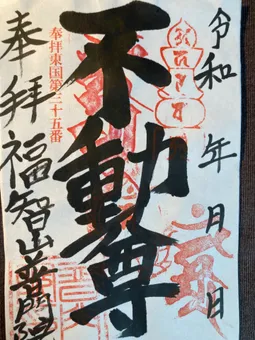 令和 年 月 日
不動尊
奉拝東国第三十五番
奉拝
福智山普門院